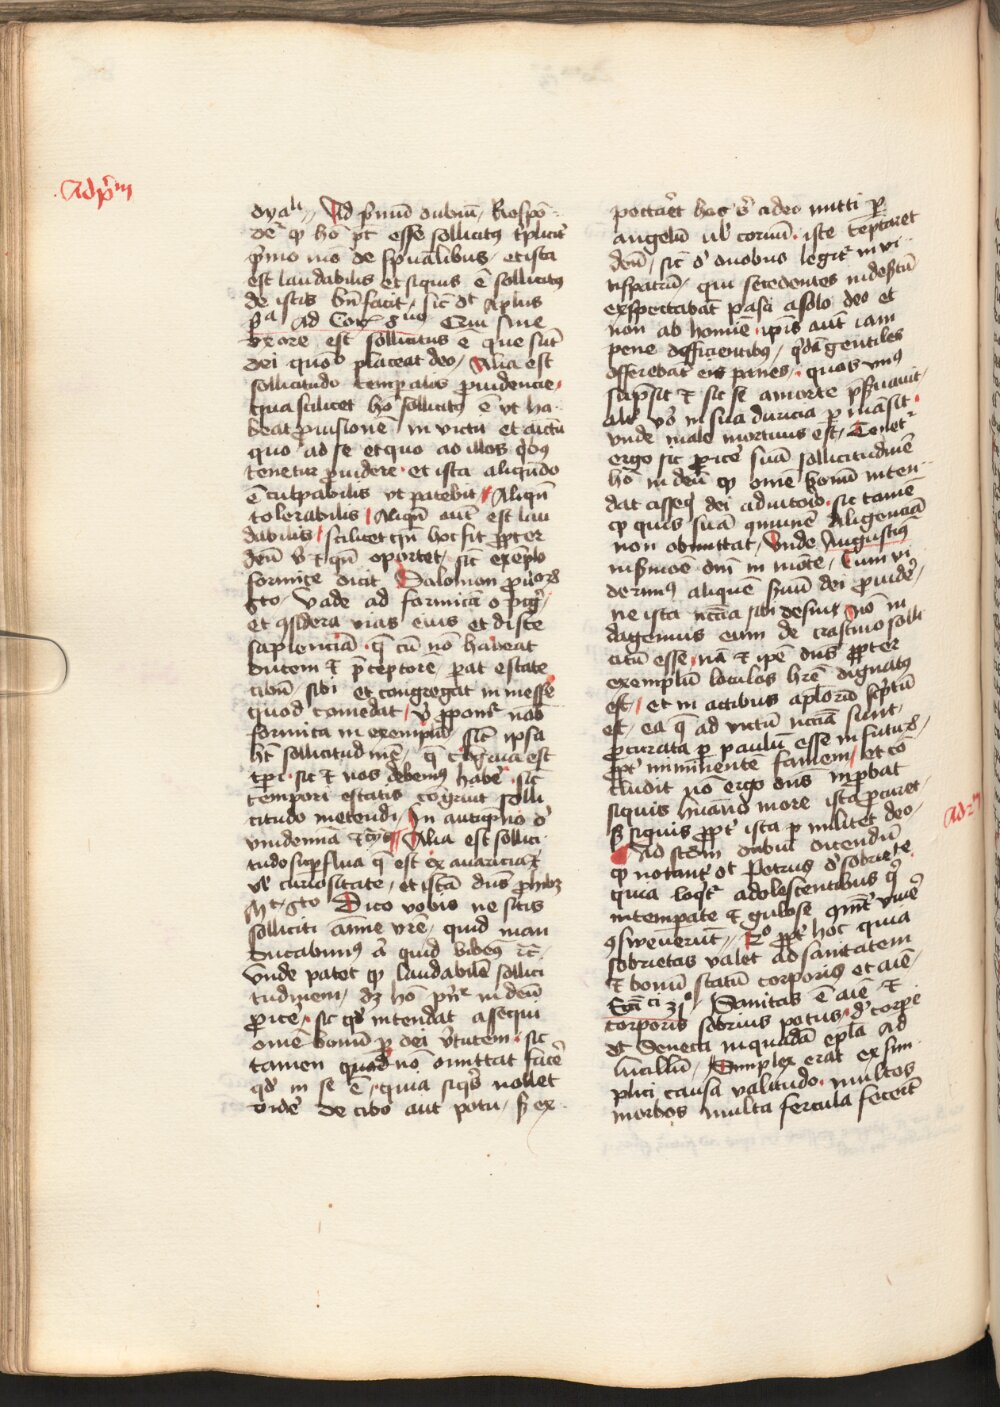 Ad p̄m
dyaͧli Ad p̄mū dubiū / Respō
detͬ ꝙ hō pt̄ esse sollicitꝯ tͥplicitͬ
p̄mo mō de spūalibus / et ista
est laudabilis et siquis ē sollicitꝯ
de istis bn̄ facit / sic dt̄ Aplus
pͣ Ad Corͭ 7ᵘᵒ Qui sine
vxore est sollicitus ē que sūt
dei quoō placeat deo / Alia est
sollicitudo temꝑalis ꝓuidencie
qua scilicet hō sollicitꝯ ē vt ha
beat ꝓuisionē in victu et aīctu
quo ad se et quo ad illos qͥbꝯ
tenetur ꝓuidere · et ista aliqn̄do
ē culpabilis vt patebit / Aliqn̄
tolerabilis / Aliqn̄ aut̄ est lau
dabilis / scilicet qn̄ hoc fit ꝓpter
deū ⁊ qn̄ oportet / sic̄ exēplo
formice dicit Salomon ꝓuorꝝ
6to · Vade ad formicā o pigͬ /
et ꝯsidera vias eius et disce
sapienciā · q̄ cū nō habeat
ducem ⁊ p̄ceptorē / parat estate
cibū sibi et congregat in messe
quod comedat / ꝓponitͬ nob̄
formica in exemplū sicut ipsa
hꝫ sollicitudinē / q̄ cōgrua est
tp̄i · sic ⁊ nos debemꝯ habere · sic̄
tempori estatis cōgruit solli
citudo metendi / In autūpno ꝟo
vindemia ⁊cͣ Alia est sollici
tudo suꝑflua q̄ est ex auaricia
vel curiositate / et istā dn̄s ꝓhibꝫ
Mt̄ · 6to Dico vobis ne sitis
solliciti anime vr̄e / quid man
ducabimꝯ aut quid bibemꝯ ⁊cͣ
Vnde patet ꝙ laudabilē sollici
tudinem / dꝫ hō pn̄r in deū
ꝓicere · sic qd̄ intendat assequi
omē bonū ꝑ dei v̄tutem · sic
tamen quod nō omittat facere
qd̄ in se ē · quia siqͥs nollet
vide de cibo aut potu / sꝫ ex
pectaret hoc sibi a deo mitti ꝑ
angelū vel corvū · iste temptaret
deū / sic̄ de duobus legitͬ in vi
tispatrū / qui secedentes in desertū
exspectabāt pasci a solo deo et
non ab homīe · ipsis aut̄ iam
pene deficientibꝯ / qͥdā gentiles
offerebāt eis panes / quos vnꝯ
sūpsit ⁊ sic se a morte p̄ſuauit /
alt̄ ꝟo in sua duricia ꝑmāsit ·
vnde male mortuus est / Tenetͬ
ergo sic ꝓicere suā sollicitudinē
hō in deū ꝙ omē bonū inten
dat assequi dei adiutorio · sic tamē
ꝙ quis suā ꝯmunē diligenciā
non obmittat / Vnde Augustiꝯ
in ſmōe dnī in mōte / Cum vi
derimꝯ aliquē ſuū dei ꝓuidere /
ne ista nc̄cia sibi desint nō iu
dagemus eum de crastino solli
citū esse · nā ⁊ ipē dn̄s ꝓpter
exemplū loculos hr̄e dignatꝯ
est / et in actibus aplorū sc̄ptū
est / ea q̄ ad victū nc̄cia sunt /
ꝓcurata ꝑ paulū esse in futurꝝ /
ꝓpt̄ iminentē famem / et cō
cludit nō ergo dn̄s inprobat
siquis humāo more ista ꝓcuret
sꝫ siquis ꝓpt̄ ista ꝑ militet deo
Ad 2m
Ad scd̄m dubiū dicendū
ꝙ notantͬ dt̄ Petrus de sobrietate
quia loqͬ adolescentibus qͥ
intemperate ⁊ gulose viuere
ꝯsweuerūt / 2o ꝓpt̄ hoc quia
sobrietas valet ad sanitatem
⁊ bonū statū corporis et aīe /
Ecciͨi 31o / Sanitas ē aīe ⁊
corporis sobrius potus · de corpore
dt̄ Seneca in quadā epl̄a Ad
lucillū / Simplex erat ex sim
plici causa valitudo · multos
morbos multa fercula fecerūt